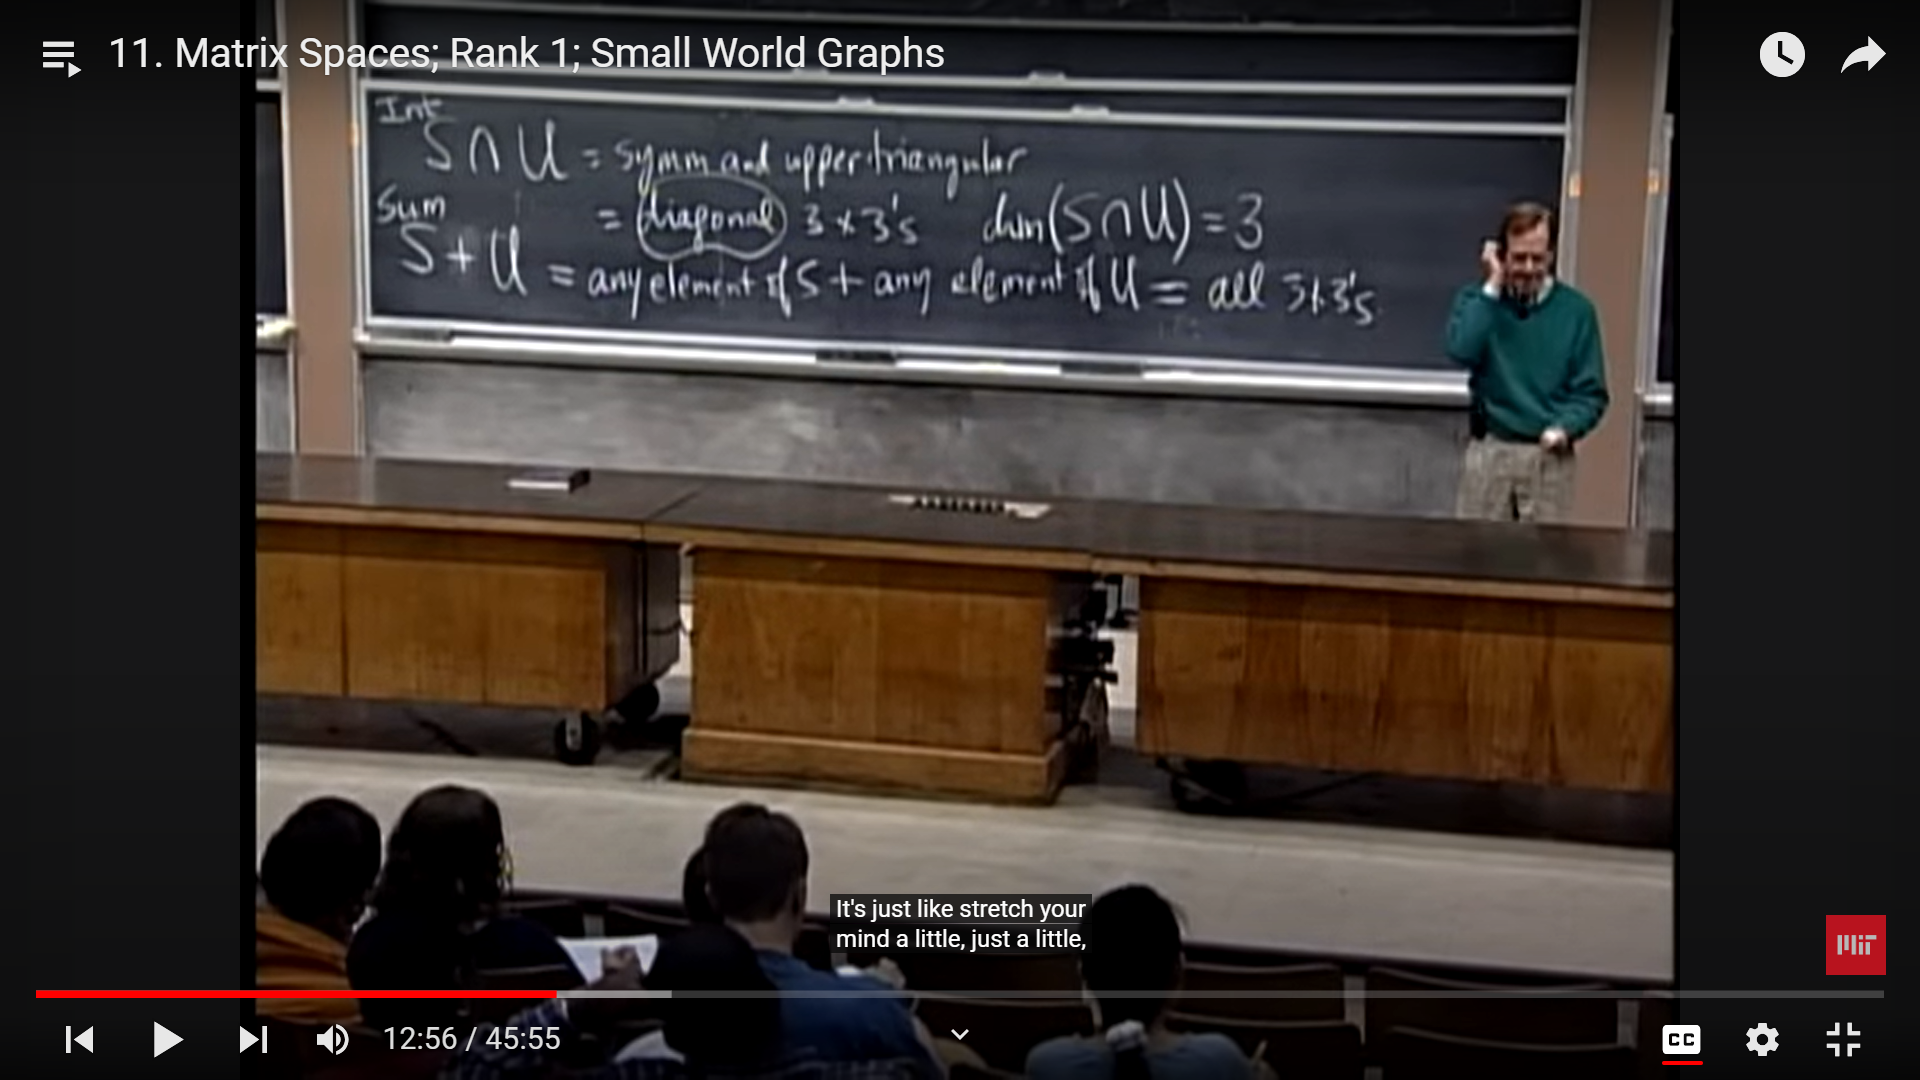 11. Matrix Spaces; Rank 1; Small World Graphs
Int
S ∩ U = symm and upper triangular
= diagonal 3 x 3's dim(S ∩ U) = 3
Sum
S + U = any element of S + any element of U = all 3x3's
It's just like stretch your
mind a little, just a little,
MIT
12:56 / 45:55
CC